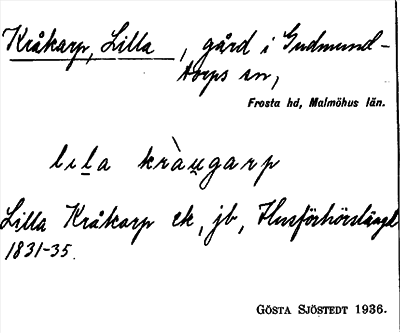 Kråkarp, Lilla, gård i Gudmund-
torps sn,
Frosta hd, Malmöhus län.
lıl̲a kràu̲garp
Lilla Kråkarp ek, jb, Husförhörslängd
1831-35.
GÖSTA SJÖSTEDT 1936.